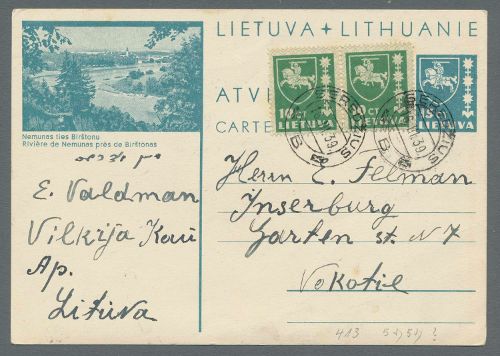 LIETUVA + LITHUANIE
10 CT
LIETUVA
CT
LIETUVA
15
LIETUVA
ATVI
CARTE
SEREDŽIUS
39
B
SEREDŽIUS
39
B
Nemunas ties Birštonu
Rivière de Nemunas près de Birštonas
E. Valdman
Vilkija Kau
Ap.
Lituva
Herrn E. Felman
Inserburg
Garten st. N 7
Vokotie
413